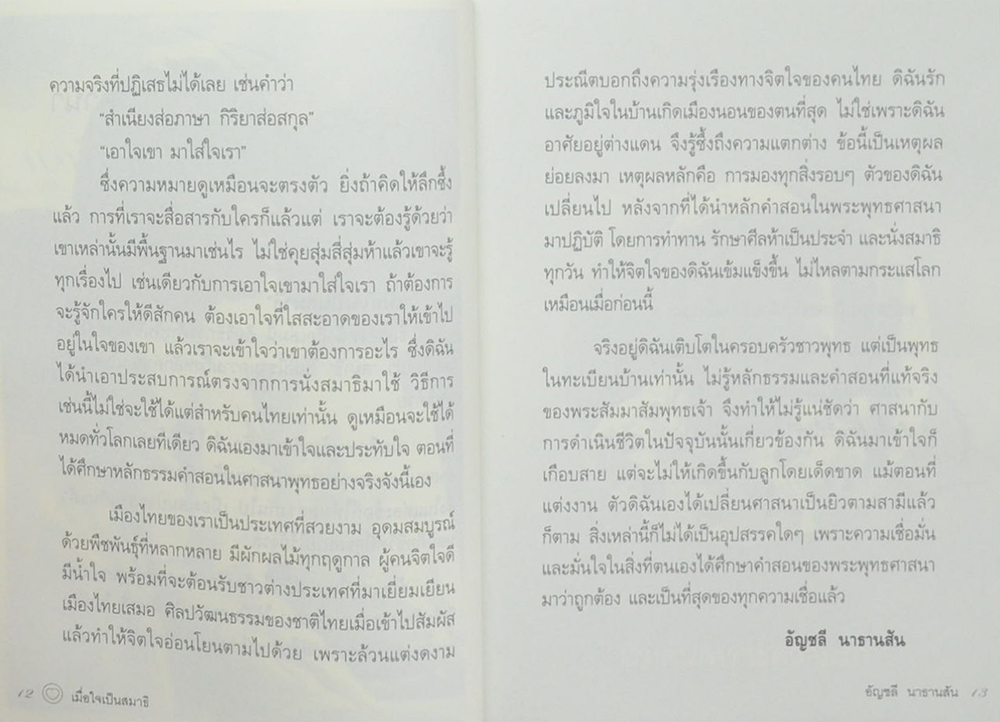 ความจริงที่ปฏิเสธไม่ได้เลย เช่นคำว่า
"สำเนียงส่อภาษา กิริยาส่อสกุล"
"เอาใจเขา มาใส่ใจเรา"
ซึ่งความหมายดูเหมือนจะตรงตัว ยิ่งถ้าคิดให้ลึกซึ้ง
แล้ว การที่เราจะสื่อสารกับใครก็แล้วแต่ เราจะต้องรู้ด้วยว่า
เขาเหล่านั้นมีพื้นฐานมาเช่นไร ไม่ใช่คุยสุ่มสี่สุ่มห้าแล้วเขาจะรู้
ทุกเรื่องไป เช่นเดียวกับการเอาใจเขามาใส่ใจเรา ถ้าต้องการ
จะรู้จักใครให้ดีสักคน ต้องเอาใจที่ใสสะอาดของเราให้เข้าไป
อยู่ในใจของเขา แล้วเราจะเข้าใจว่าเขาต้องการอะไร ซึ่งดิฉัน
ได้นำเอาประสบการณ์ตรงจากการนั่งสมาธิมาใช้ วิธีการ
เช่นนี้ไม่ใช่จะใช้ได้แต่สำหรับคนไทยเท่านั้น ดูเหมือนจะใช้ได้
หมดทั่วโลกเลยทีเดียว ดิฉันเองมาเข้าใจและประทับใจ ตอนที่
ได้ศึกษาหลักธรรมคำสอนในศาสนาพุทธอย่างจริงจังนี้เอง
เมืองไทยของเราเป็นประเทศที่สวยงาม อุดมสมบูรณ์
ด้วยพืชพันธุ์ที่หลากหลาย มีผักผลไม้ทุกฤดูกาล ผู้คนจิตใจดี
มีน้ำใจ พร้อมที่จะต้อนรับชาวต่างประเทศที่มาเยี่ยมเยียน
เมืองไทยเสมอ ศิลปวัฒนธรรมของชาติไทยเมื่อเข้าไปสัมผัส
แล้วทำให้จิตใจอ่อนโยนตามไปด้วย เพราะล้วนแต่งดงาม
12 เมื่อใจเป็นสมาธิ
ประณีตบอกถึงความรุ่งเรืองทางจิตใจของคนไทย ดิฉันรัก
และภูมิใจในบ้านเกิดเมืองนอนของตนที่สุด ไม่ใช่เพราะดิฉัน
อาศัยอยู่ต่างแดน จึงรู้ซึ้งถึงความแตกต่าง ข้อนี้เป็นเหตุผล
ย่อยลงมา เหตุผลหลักคือ การมองทุกสิ่งรอบๆ ตัวของดิฉัน
เปลี่ยนไป หลังจากที่ได้นำหลักคำสอนในพระพุทธศาสนา
มาปฏิบัติ โดยการทำทาน รักษาศีลห้าเป็นประจำ และนั่งสมาธิ
ทุกวัน ทำให้จิตใจของดิฉันเข้มแข็งขึ้น ไม่ไหลตามกระแสโลก
เหมือนเมื่อก่อนนี้
จริงอยู่ดิฉันเติบโตในครอบครัวชาวพุทธ แต่เป็นพุทธ
ในทะเบียนบ้านเท่านั้น ไม่รู้หลักธรรมและคำสอนที่แท้จริง
ของพระสัมมาสัมพุทธเจ้า จึงทำให้ไม่รู้แน่ชัดว่า ศาสนากับ
การดำเนินชีวิตในปัจจุบันนั้นเกี่ยวข้องกัน ดิฉันมาเข้าใจก็
เกือบสาย แต่จะไม่ให้เกิดขึ้นกับลูกโดยเด็ดขาด แม้ตอนที่
แต่งงาน ตัวดิฉันเองได้เปลี่ยนศาสนาเป็นยิวตามสามีแล้ว
ก็ตาม สิ่งเหล่านี้ก็ไม่ได้เป็นอุปสรรคใดๆ เพราะความเชื่อมั่น
และมั่นใจในสิ่งที่ตนเองได้ศึกษาคำสอนของพระพุทธศาสนา
มาว่าถูกต้อง และเป็นที่สุดของทุกความเชื่อแล้ว
อัญชลี นาธานสัน
อัญชลี นาธานสัน 13